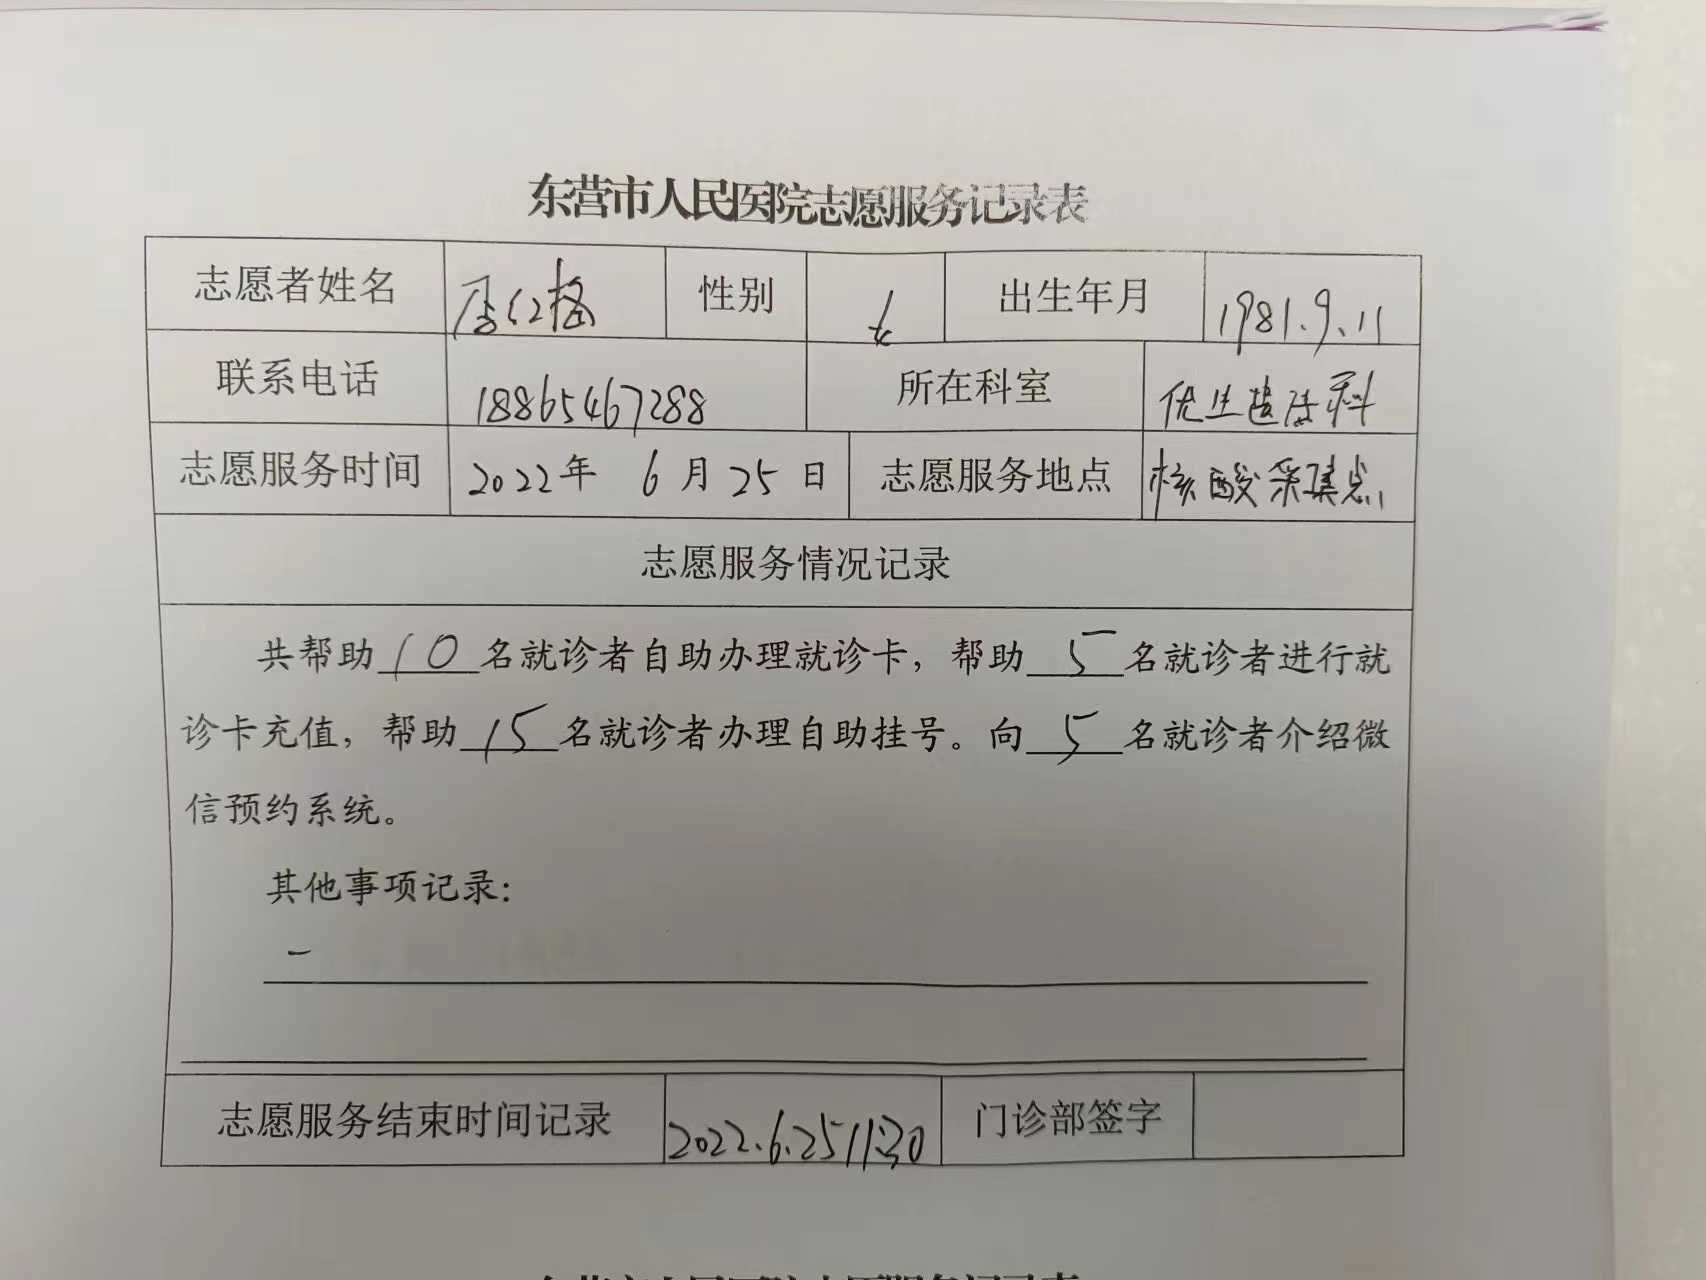 东营市人民医院志愿服务记录表
志愿者姓名 性别 女 出生年月 1981.9.11
联系电话 18865467288 所在科室 优生遗传科
志愿服务时间 2022年 6月25日 志愿服务地点 核酸采集点
志愿服务情况记录
共帮助10名就诊者自助办理就诊卡，帮助5名就诊者进行就
诊卡充值，帮助15名就诊者办理自助挂号。向5名就诊者介绍微
信预约系统。
其他事项记录：
志愿服务结束时间记录 2022.6.25 11:30 门诊部签字
东营市人民医院志愿服务记录表